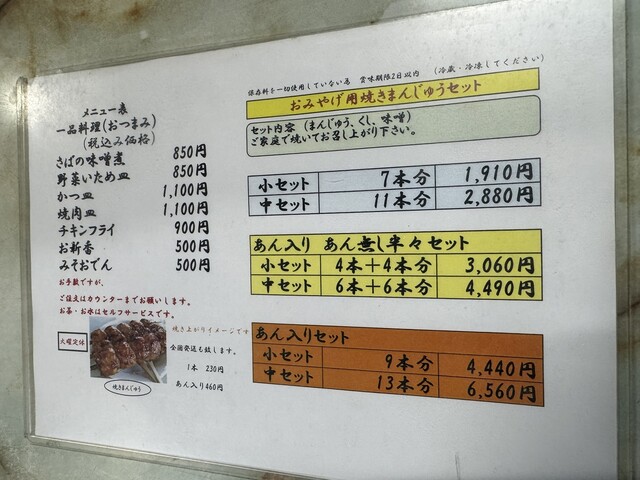 メニュー表
一品料理(おつまみ)
(税込み価格)
さばの味噌煮 850円
野菜いため皿 850円
かつ皿 1,100円
焼肉皿 1,100円
チキンフライ 900円
お新香 500円
みそおでん 500円
お手数ですが、
ご注文はカウンターまでお願いします。
お茶・お水はセルフサービスです。
火曜定休
焼き上がりイメージです
全国発送も致します。
1本 230円
あん入り460円
焼きまんじゅう
保存料を一切使用していない為 賞味期限2日以内 (冷蔵・冷凍してください)
おみやげ用焼きまんじゅうセット
セット内容 (まんじゅう、くし、味噌)
ご家庭で焼いてお召し上がり下さい。
小セット 7本分 1,910円
中セット 11本分 2,880円
あん入り あん無し半々セット
小セット 4本+4本分 3,060円
中セット 6本+6本分 4,490円
あん入りセット
小セット 9本分 4,440円
中セット 13本分 6,560円